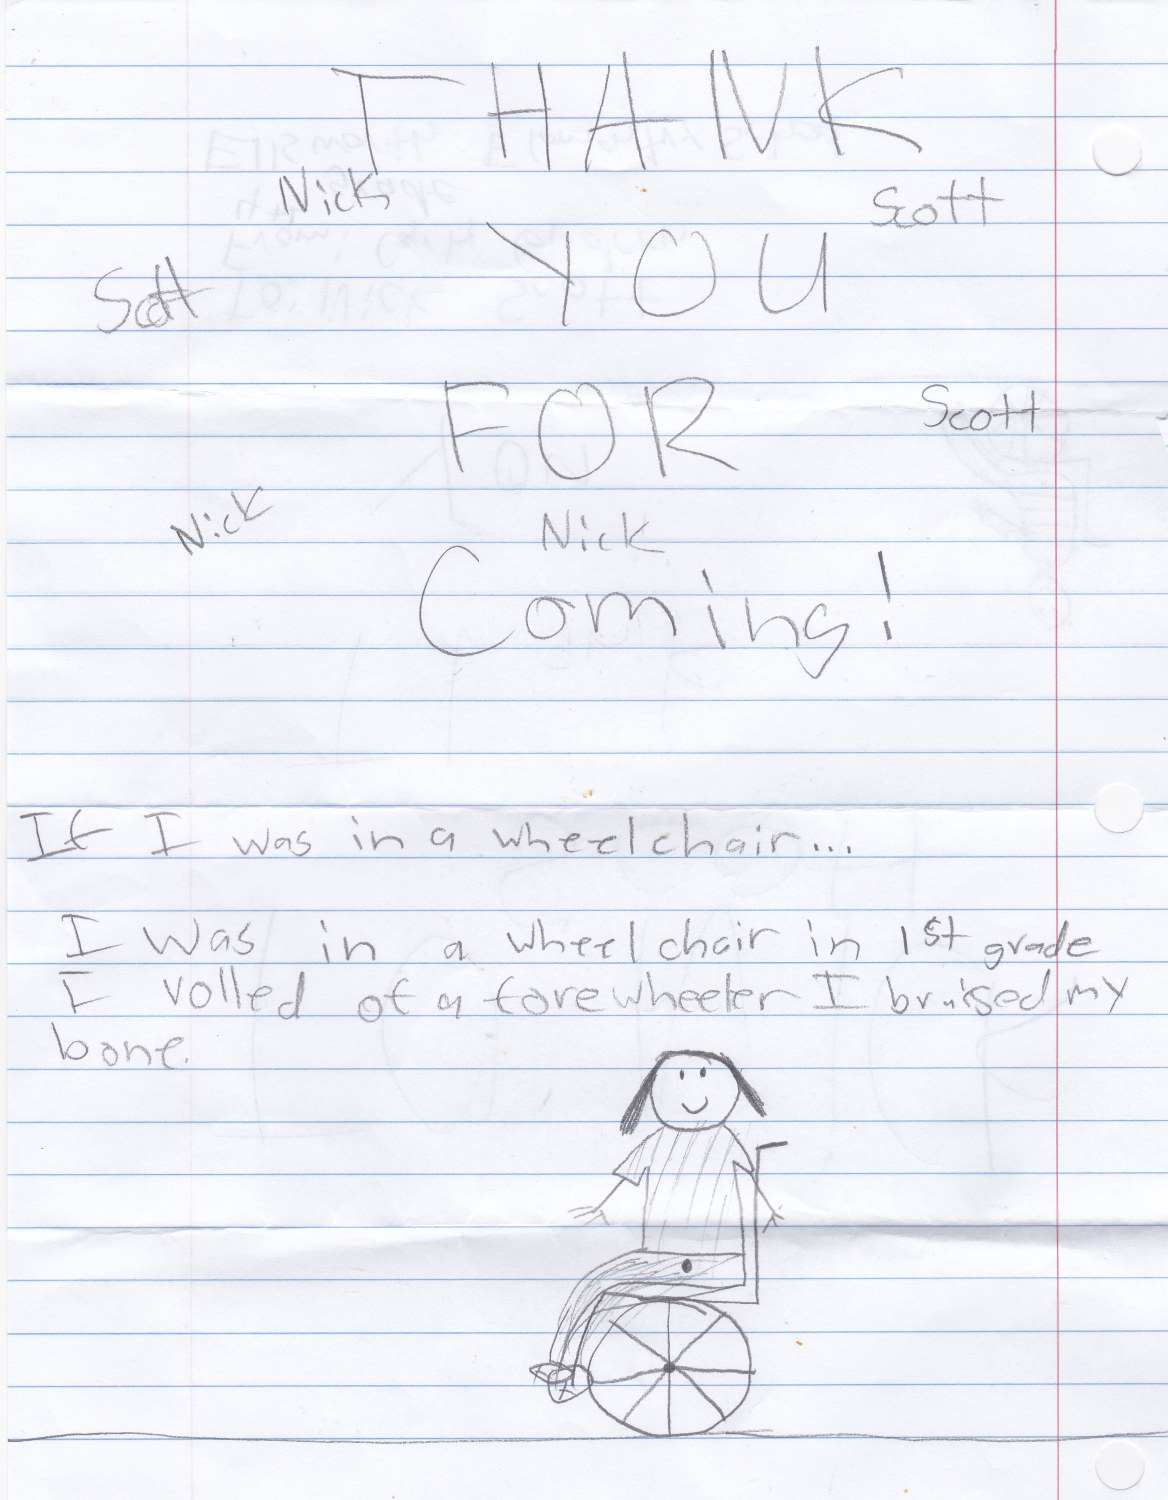 THANK
Nick
Scott
YOU
Scott
FOR
Scott
Nick
Nick
Coming!
If I was in a wheelchair...
I was in a wheelchair in 1st grade
I rolled of a forewheeler I bruised my
bone.